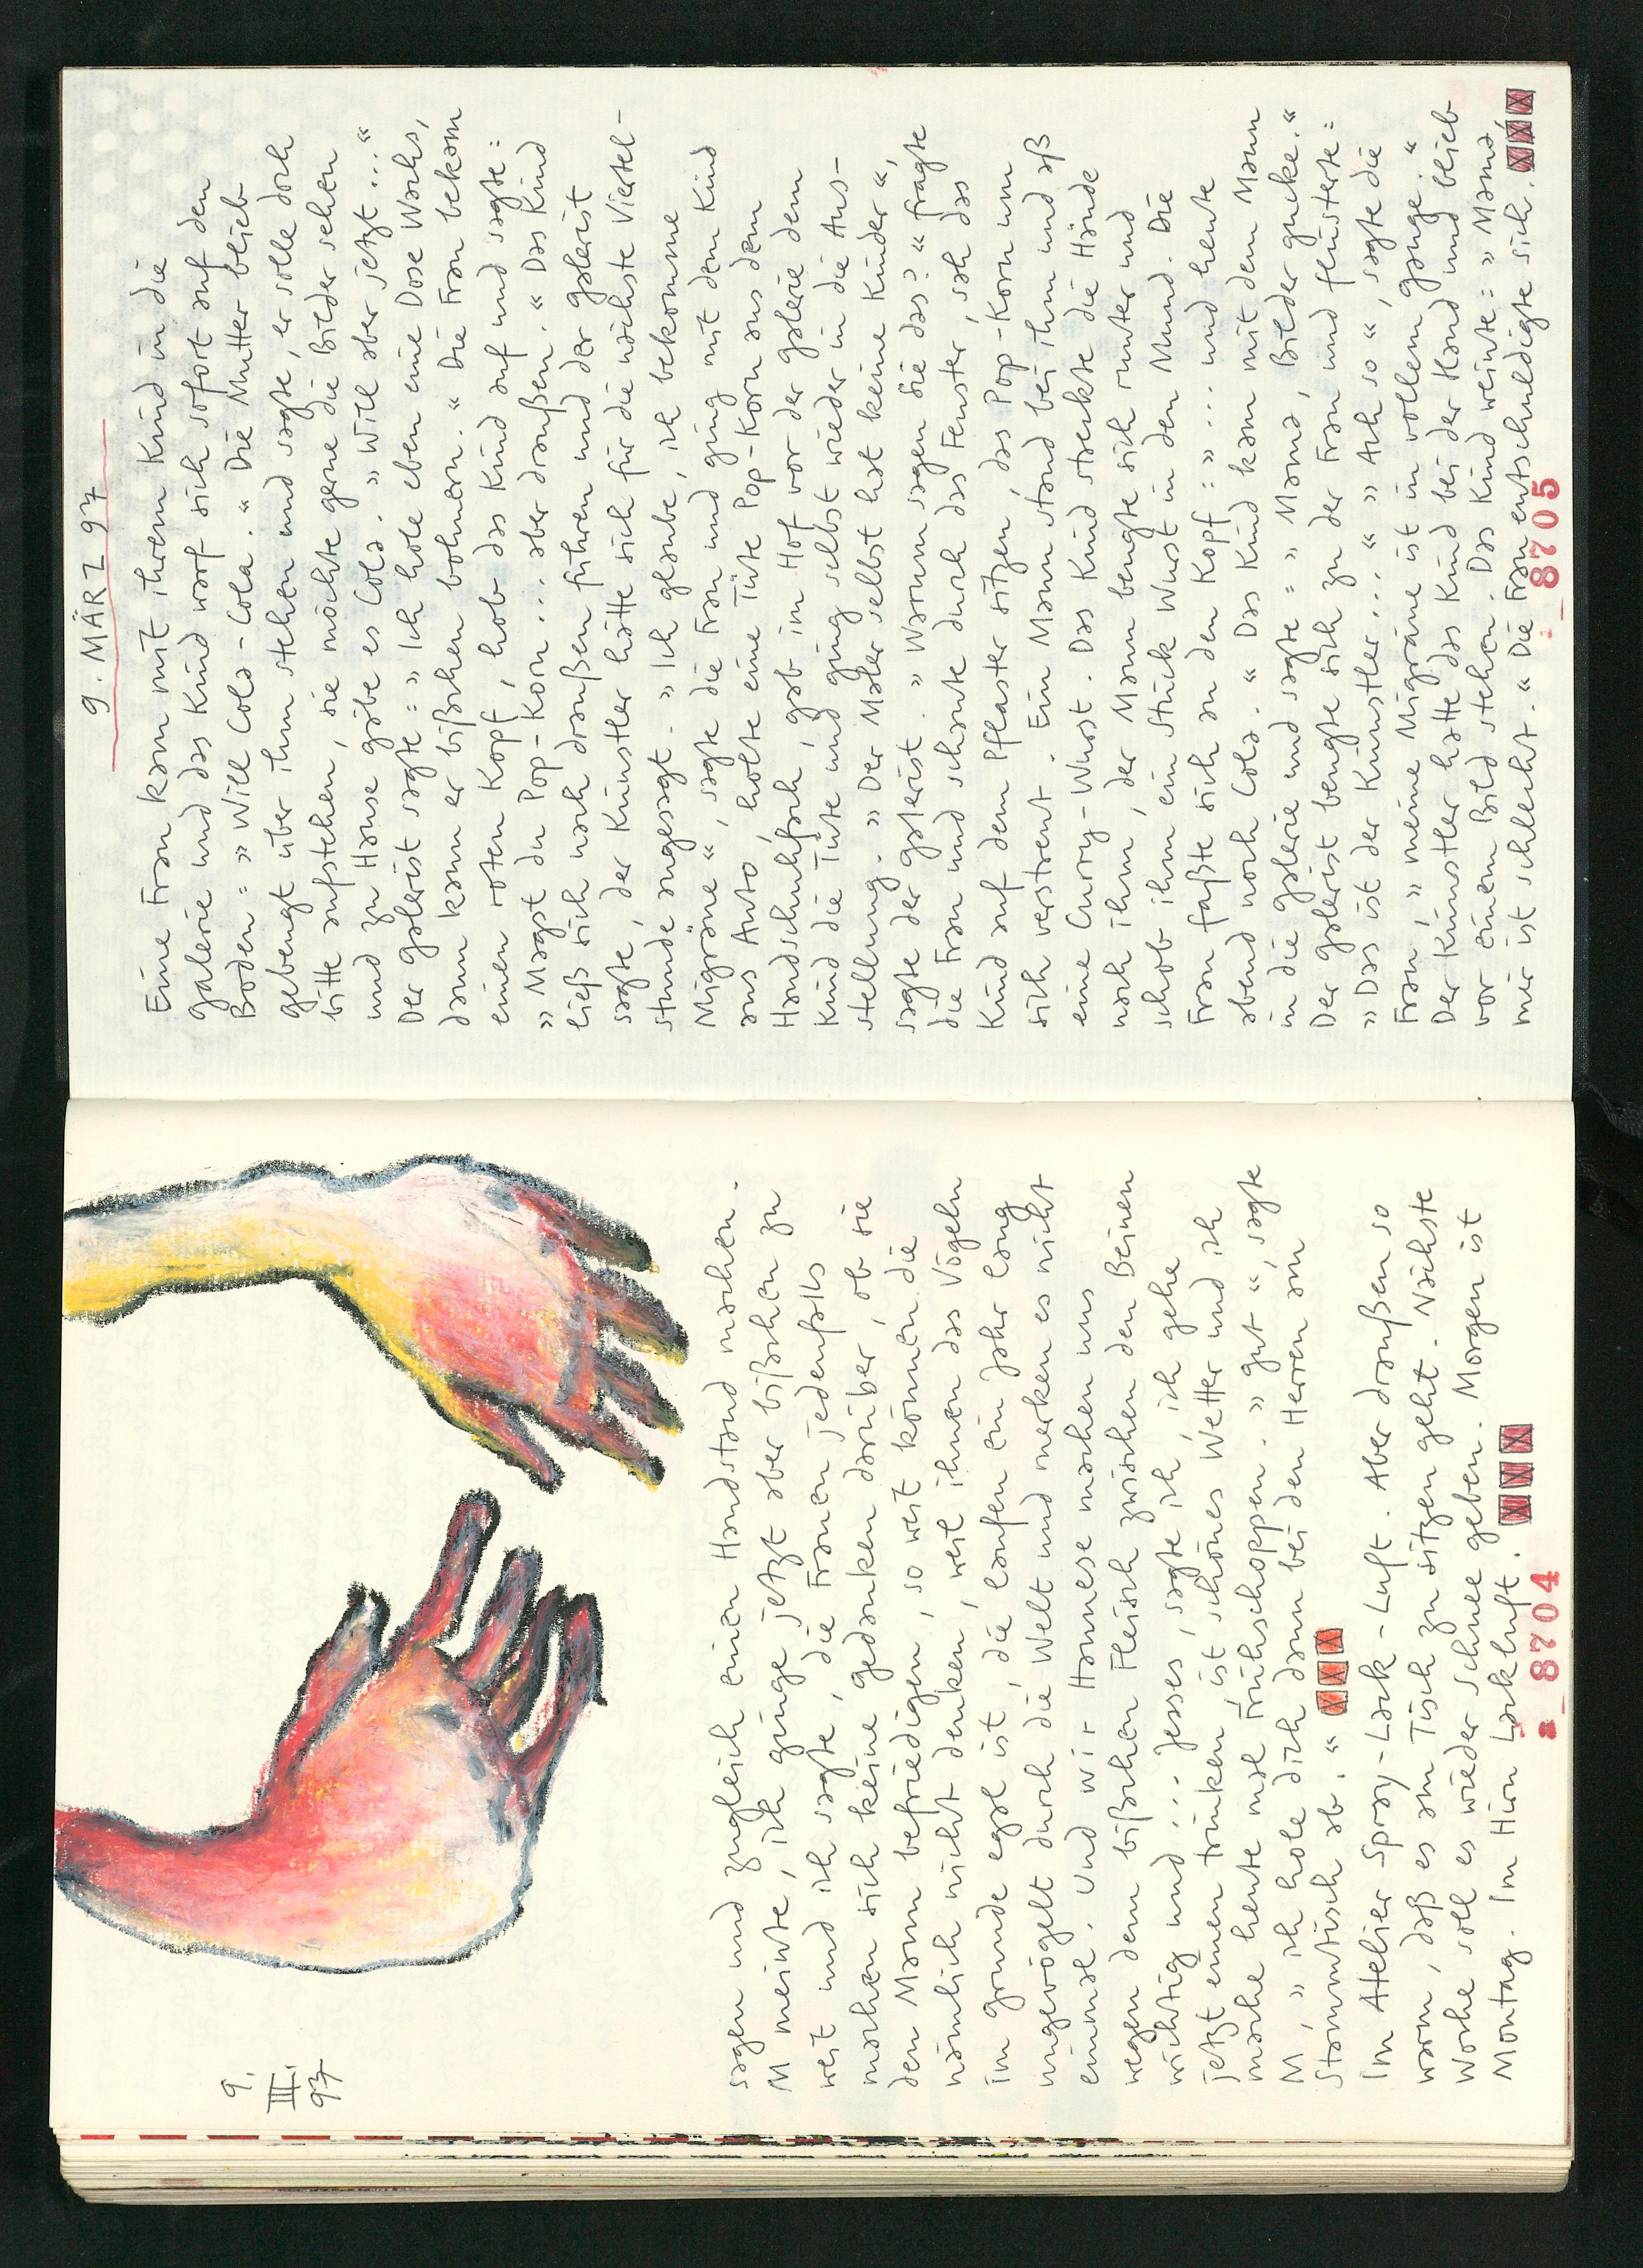 9.
III.
97
sagen und zugleich einen Handstand machen.
M meinte, ich ginge jetzt aber bißchen zu
weit und ich sagte, die Frauen jedenfalls
machen sich keine Gedanken darüber, ob sie
den Mann befriedigen, so weit können die
nämlich nicht denken, weil ihnen das Vögeln
im Grunde egal ist, die laufen ein Jahr lang
ungevögelt durch die Welt und merken es nicht
einmal. Und wir Hannese machen uns
wegen dem bißchen Fleisch zwischen den Beinen
wichtig und... Jesses, sagte ich, ich gehe
jetzt einen trinken, ist schönes Wetter und ich
mache heute mal Frühschoppen. » Gut «, sagte
M, » ich hole dich dann bei den Herren am
Stammtisch ab. «
Im Atelier Spray-Lack-Luft. Aber draußen so
warm, daß es am Tisch zu sitzen geht. Nächste
Woche soll es wieder Schnee geben. Morgen ist
Montag. Im Hirn Lackluft.
8704
9. MÄRZ 97
Eine Frau kam mit ihrem Kind in die
Galerie und das Kind warf sich sofort auf den
Boden: » Will Cola-Cola. « Die Mutter blieb
gebeugt über ihm stehen und sagte, er solle doch
bitte aufstehen, sie möchte gerne die Bilder sehen
und zu Hause gäbe es Cola. » Will aber jetzt... «
Der Galerist sagte: » Ich hole eben eine Dose Wachs,
dann kann er bißchen bohnern. « Die Frau bekam
einen roten Kopf, hob das Kind auf und sagte:
» Magst du Pop-Korn... aber draußen. « Das Kind
ließ sich nach draußen führen und der Galerist
sagte, der Künstler hätte sich für die nächste Viertel-
stunde angesagt. » Ich glaube, ich bekomme
Migräne «, sagte die Frau und ging mit dem Kind
ans Auto, holte eine Tüte Pop-Korn aus dem
Handschuhfach, gab im Hof vor der Galerie dem
Kind die Tüte und ging selbst wieder in die Aus-
stellung. » Der Maler selbst hat keine Kinder «,
sagte der Galerist. » Warum sagen Sie das? « fragte
die Frau und schaute durch das Fenster, sah das
Kind auf dem Pflaster sitzen, das Pop-Korn um
sich verstreut. Ein Mann stand bei ihm und aß
eine Curry-Wurst. Das Kind streckte die Hände
nach ihm, der Mann beugte sich runter und
schob ihm ein Stück Wurst in den Mund. Die
Frau faßte sich an den Kopf: »... und heute
abend noch Cola. « Das Kind kam mit dem Mann
in die Galerie und sagte: » Mama, Bilder gucke. «
Der Galerist beugte sich zu der Frau und flüsterte:
» Das ist der Künstler... « » Ach so «, sagte die
Frau, » meine Migräne ist in vollem Gange. «
Der Künstler hatte das Kind bei der Hand und blieb
vor einem Bild stehen. Das Kind weinte: » Mama,
mir ist schlecht. « Die Frau entschuldigte sich.
8705